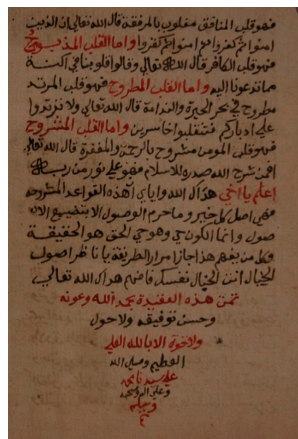 فهو قلب المنافق مغلوب بالمرفقة قال الله تعالى ان الذين
امنوا ثم كفروا ثم امنوا ثم كفروا واما القلب
فهو قلب الكافر قال الله تعالى وقالوا قلوبنا في اكنة
مما تدعونا اليه واما القلب المطروح فهو قلب المرتد
مطروح في بحر الحيرة والندامة قال الله تعالى ولا ترتدوا
على ادباركم فتنقلبوا خاسرين واما القلب المشروح
فهو قلب المومن مشروح بالرحمة والمغفرة قال الله تعالى
افمن شرح الله صدره للاسلام فهو على نور من ربه
اعلم يا اخي هداك الله واياي ان هذه القواعد المشروحة
فهي اصل كل خير وما حرم الوصول الا بتضييع الا
صول وانما الكون وهو حي الحق هو الحقيقة
وكل من يفهم هذا حاز اسرار الطريقة يا ناظر اصول
الخيال انت الخيال نفسك فافهم هداك الله تعالى
تمت هذه العقيدة بحمد الله وعونه
وحسن توفيقه ولا حول
ولا قوة الا بالله العلي
العظيم وصلى الله
على سيدنا محمد
وعلى اله وصحبه
وسلم